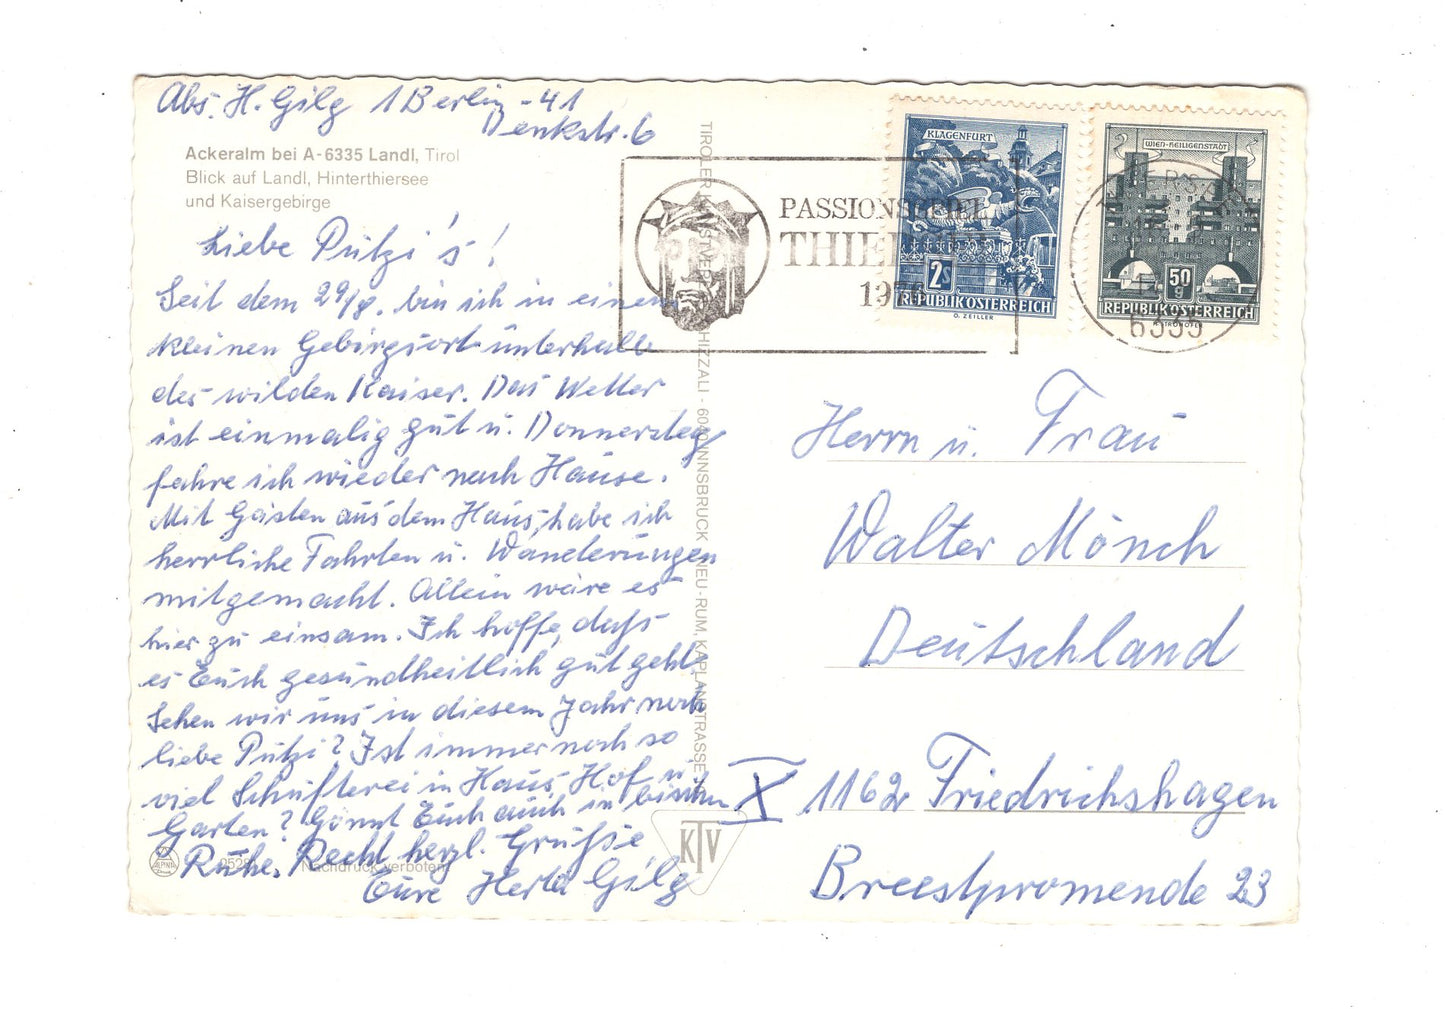 Abs. H. Gilg 1 Berlin-41
Denkstr. 6
Ackeralm bei A-6335 Landl, Tirol
Blick auf Landl, Hinterthiersee
und Kaisergebirge
Liebe Putzi's!
Seit dem 29/8. bin ich in einem
kleinen Gebirgsort unterhalb
des wilden Kaiser. Das Wetter
ist einmalig gut u. Donnerstag
fahre ich wieder nach Hause.
Mit Gästen aus dem Haus, habe ich
herrliche Fahrten u. Wanderungen
mitgemacht. Allein wäre es
hier zu einsam. Ich hoffe, daß
es Euch gesundheitlich gut geht.
Sehen wir uns in diesem Jahr noch
liebe Putzi? Ist immer noch so
viel Schufterei in Haus, Hof u.
Garten? Gönnt Euch auch in bischen
Ruhe. Recht herzl. Grüße
Eure Herta Gilg
Nachdruck verboten
TIROLER KUNSTVERLAG CHIZZALI - 6040 INNSBRUCK NEU-RUM, KAPLANSTRASSE
KTV
PASSIONSSPIEL
THIER
197
KLAGENFURT
2S
REPUBLIK ÖSTERREICH
O. ZEILLER
WIEN-HEILIGENSTADT
50 g
REPUBLIK ÖSTERREICH
6335
Herrn u. Frau
Walter Mönch
Deutschland
X 1162 Friedrichshagen
Breestpromende 23